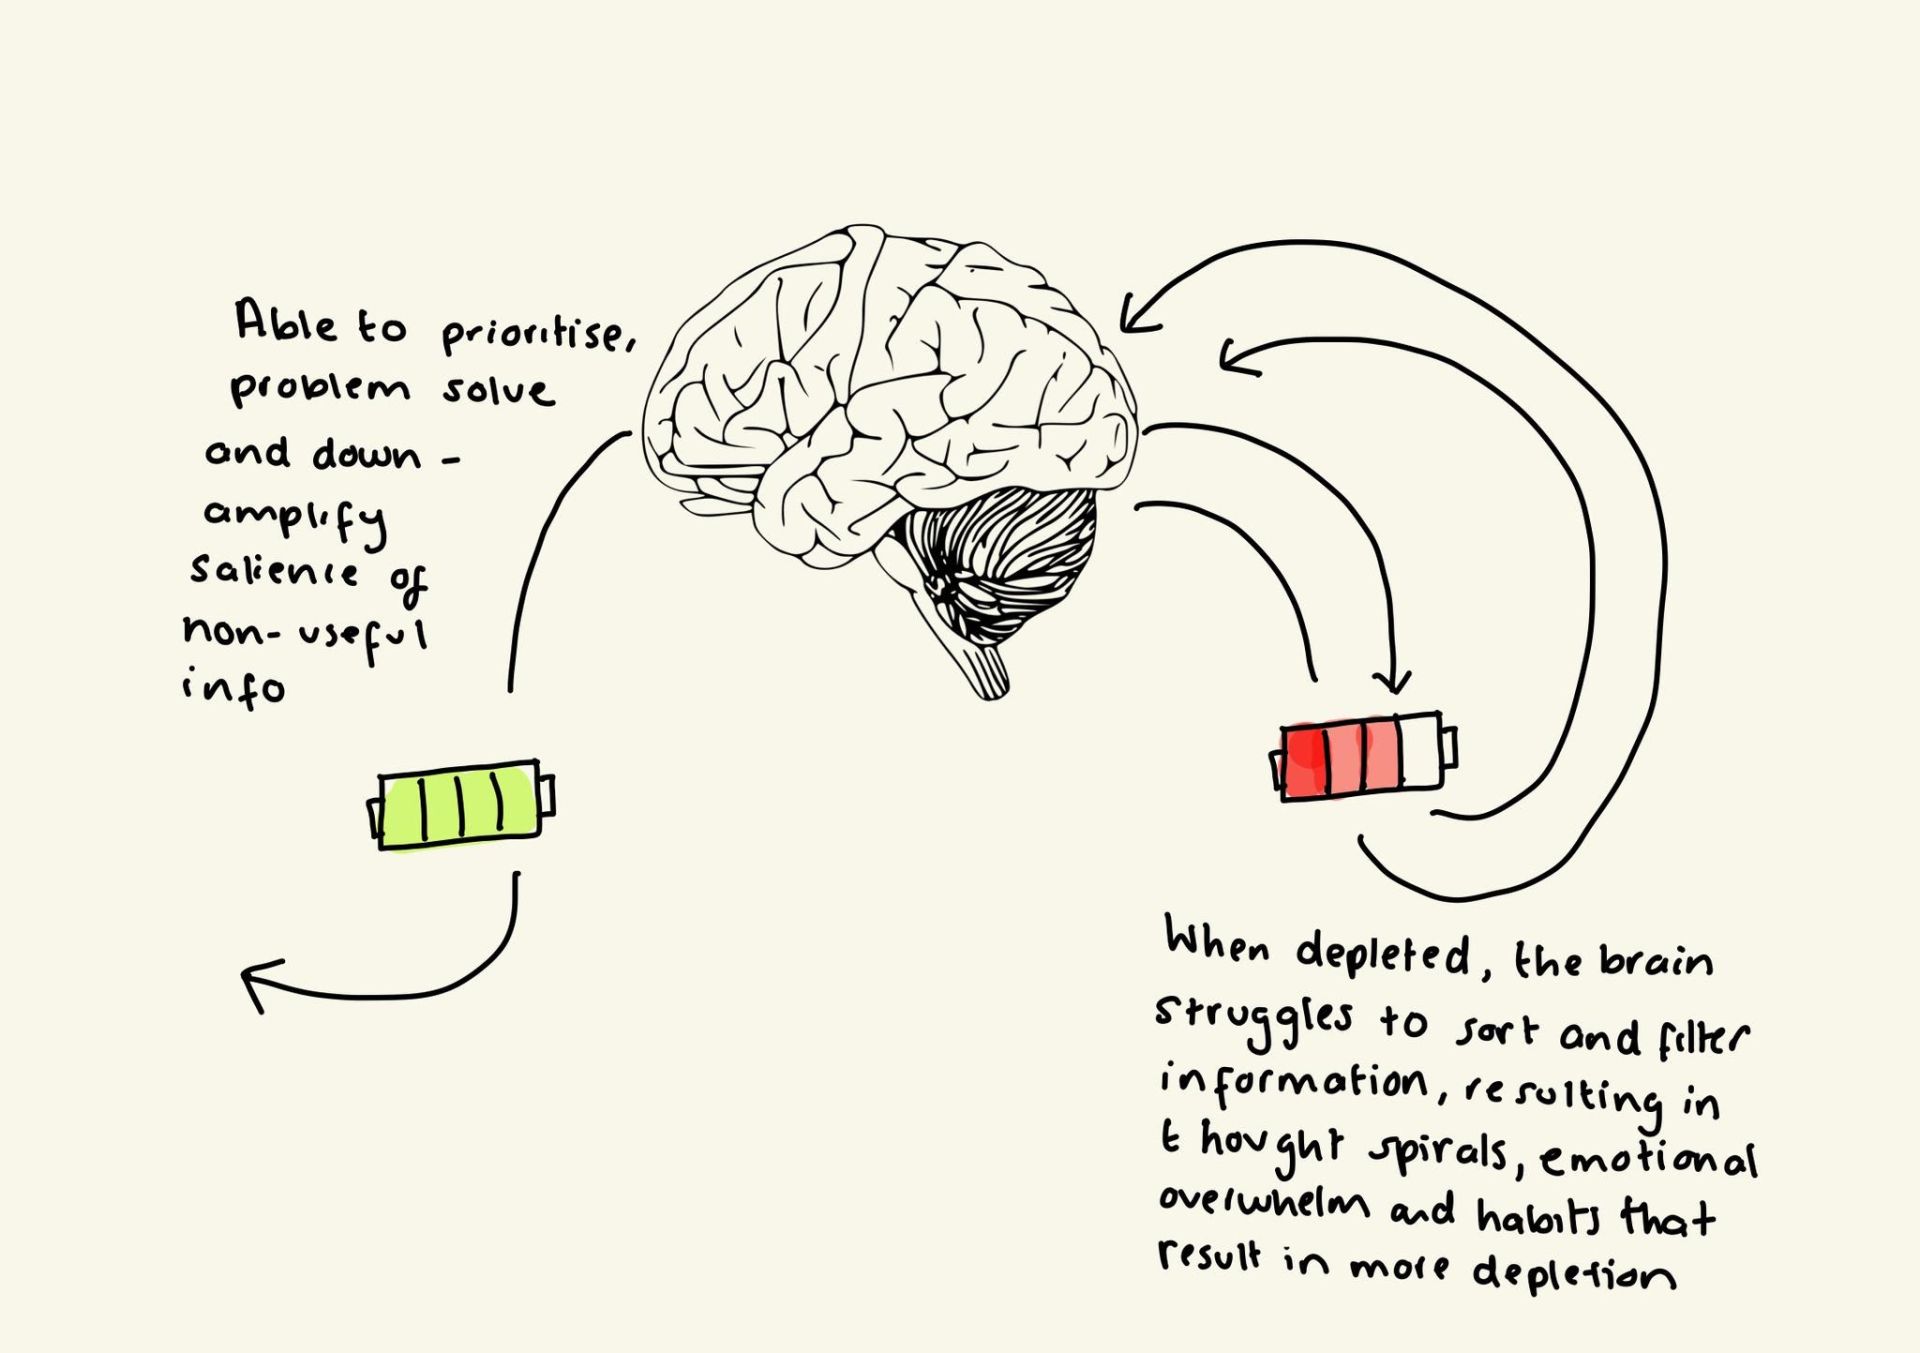 Able to prioritise,
problem solve
and down -
amplify
salience of
non-useful
info
When depleted, the brain
struggles to sort and filter
information, resulting in
thought spirals, emotional
overwhelm and habits that
result in more depletion